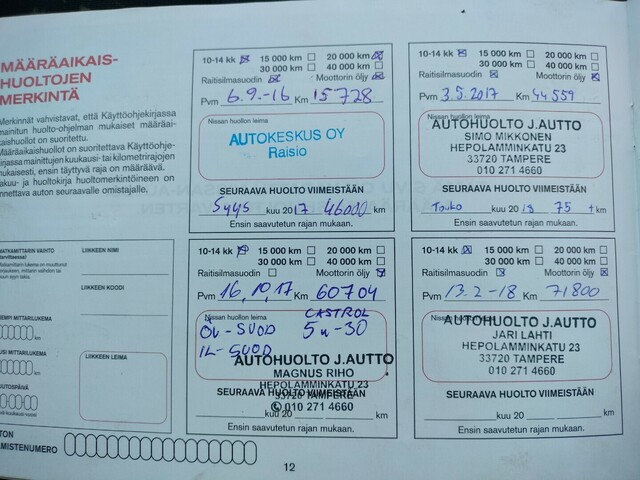 MÄÄRÄAIKAIS-
HUOLTOJEN
MERKINTÄ
Merkinnät vahvistavat, että Käyttöohjekirjassa
mainitun huolto-ohjelman mukaiset määräai-
kaishuollot on suoritettu.
Määräaikaishuollot on suoritettava Käyttöohje-
kirjassa mainittujen kuukausi- tai kilometrirajojen
mukaisesti, ensin täyttyvä raja on määräävä.
Takuu- ja huoltokirja huoltomerkintöineen on
annettava auton seuraavalle omistajalle.
MATKAMITTARIN VAIHTO
LIIKKEEN NIMI
LIIKKEEN KOODI
LIIKKEEN LEIMA
km
km
10-14 kk 15 000 km 20 000 km
30 000 km 40 000 km
Raitisilmasuodin Moottorin öljy
Pvm 6.9.-16 Km 15728
Nissan huollon leima
AUTOKESKUS OY
Raisio
SEURAAVA HUOLTO VIIMEISTÄÄN
Syys kuu 2017 46000 km
Ensin saavutetun rajan mukaan.
10-14 kk 15 000 km 20 000 km
30 000 km 40 000 km
Raitisilmasuodin Moottorin öljy
Pvm 3.5.2017 Km 44559
Nissan huollon leima
AUTOHUOLTO J.AUTTO
SIMO MIKKONEN
HEPOLAMMINKATU 23
33720 TAMPERE
010 271 4660
SEURAAVA HUOLTO VIIMEISTÄÄN
Touko kuu 2018 75 t km
Ensin saavutetun rajan mukaan.
10-14 kk 15 000 km 20 000 km
30 000 km 40 000 km
Raitisilmasuodin Moottorin öljy
Pvm 16.10.17 Km 60704
Nissan huollon leima
CASTROL
ÖL-SUOD 5w-30
IL-SUOD
AUTOHUOLTO J.AUTTO
MAGNUS RIHO
HEPOLAMMINKATU 23
33720 TAMPERE
010 271 4660
SEURAAVA HUOLTO VIIMEISTÄÄN
kuu 20 km
Ensin saavutetun rajan mukaan.
10-14 kk 15 000 km 20 000 km
30 000 km 40 000 km
Raitisilmasuodin Moottorin öljy
Pvm 13.2-18 Km 71800
Nissan huollon leima
AUTOHUOLTO J.AUTTO
JARI LAHTI
HEPOLAMMINKATU 23
33720 TAMPERE
010 271 4660
SEURAAVA HUOLTO VIIMEISTÄÄN
kuu 20 km
Ensin saavutetun rajan mukaan.
12